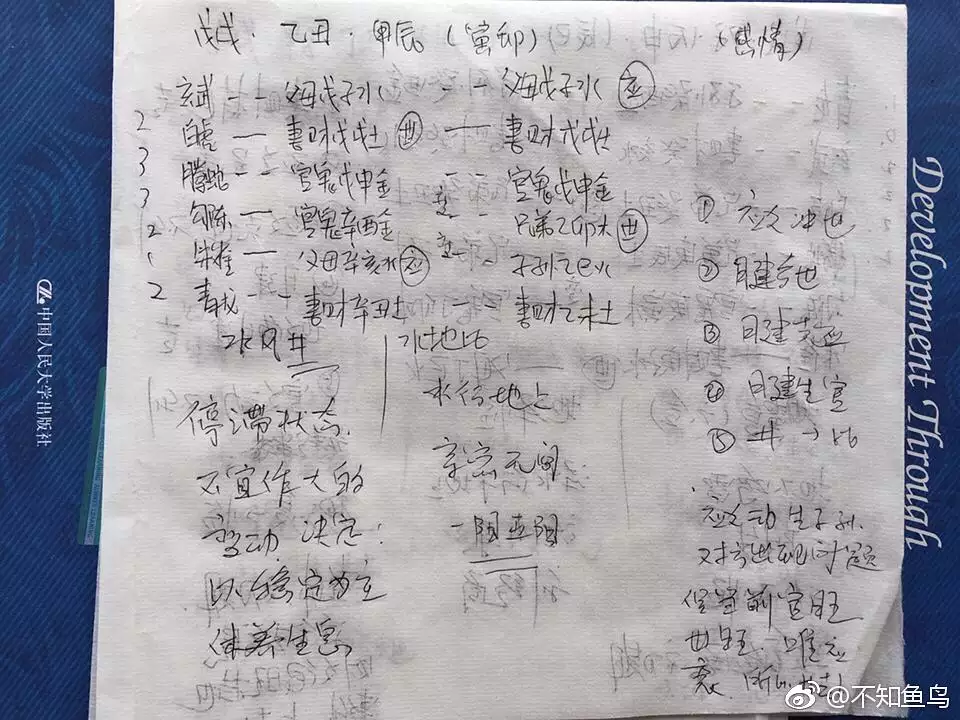 戊戌·乙丑·甲辰(寅卯) (感情)
玄武 -- 父母戊子水 -- 父母戊子水 应
2 白虎 — 妻财戊戌土 世 — 妻财戊戌土
3 腾蛇 -- 官鬼戊申金 -- 官鬼戊申金
3 勾陈 — 官鬼辛酉金 -- 兄弟乙卯木 世
2 朱雀 — 父母辛亥水 应 -- 子孙乙巳火
1
2 青龙 -- 妻财辛丑土 -- 妻财乙未土
水风井
水地比
停滞状态
不宜作大的
变动 决定:
以稳定为主
休养生息
水行地上
亲密无间
① 应爻冲世
② 月建合世
③ 日建克应
④ 日建生官
⑤ 井→比
应爻动生子孙.
对方出现问题
但当前官旺
世旺. 唯应
衰.
Development Through
中国人民大学出版社
@不知鱼鸟